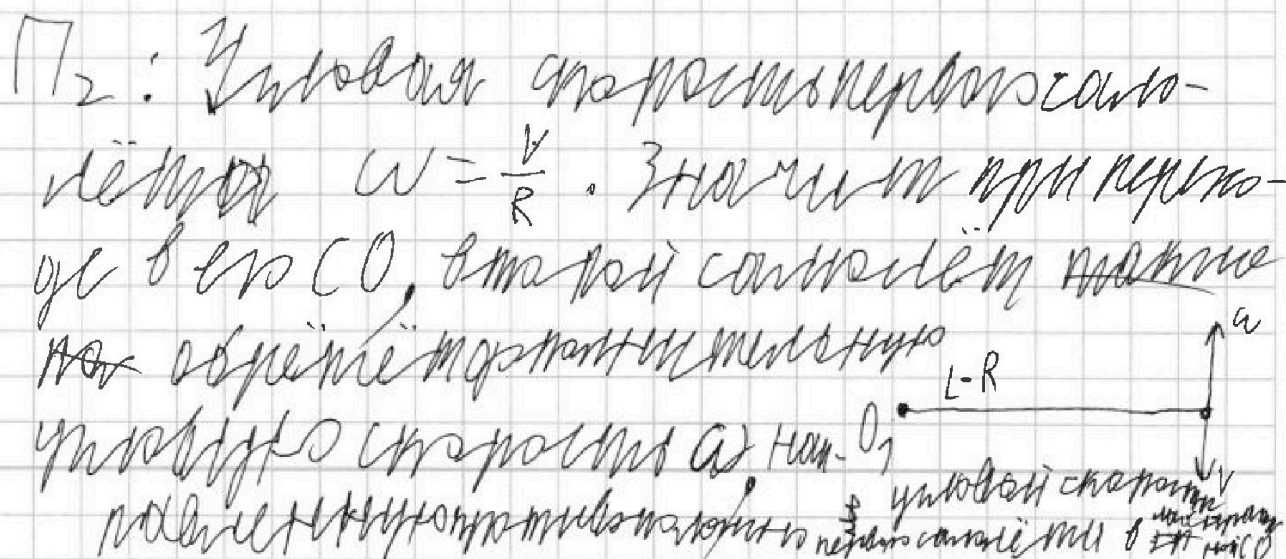 П₂: Угловая скорость первого само-
лёта ω = V/R. Значит при перехо-
де в его СО, второй самолёт также
обретёт дополнительную
угловую скорость ω, нап-
равленную противоположно угловой скорости
первого самолёта в
L-R
O₁
ω
V